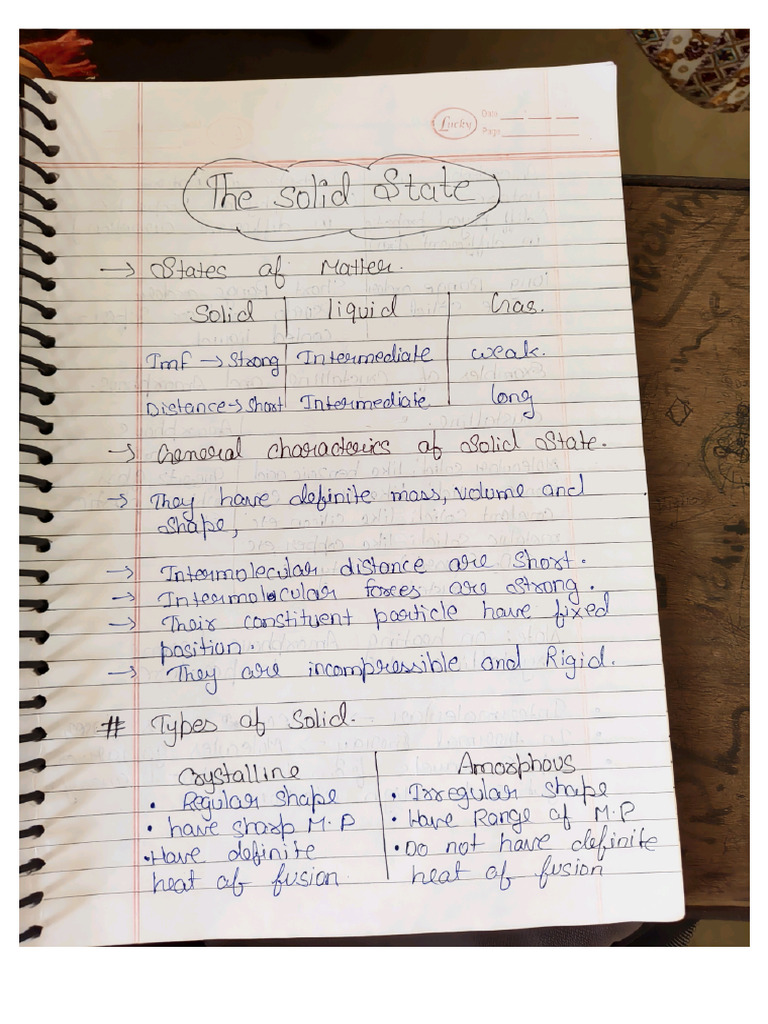 Lucky
Date
Page
The Solid State
→ States of Matter.
Solid | liquid | Gas.
Imf → Strong | Intermediate | weak.
Distance → Short | Intermediate | long
→ General characterics of Solid State.
→ They have definite mass, volume and
shape,
→ Intermolecular distance are short.
→ Intermolecular forces are strong.
→ Their constituent particle have fixed
position.
→ They are incompressible and Rigid.
# Types of Solid.
Crystalline | Amorphous
• Regular shape | • Irregular shape
• have sharp M.P | • Have Range of M.P
• Have definite | • Do not have definite
heat of fusion | heat of fusion